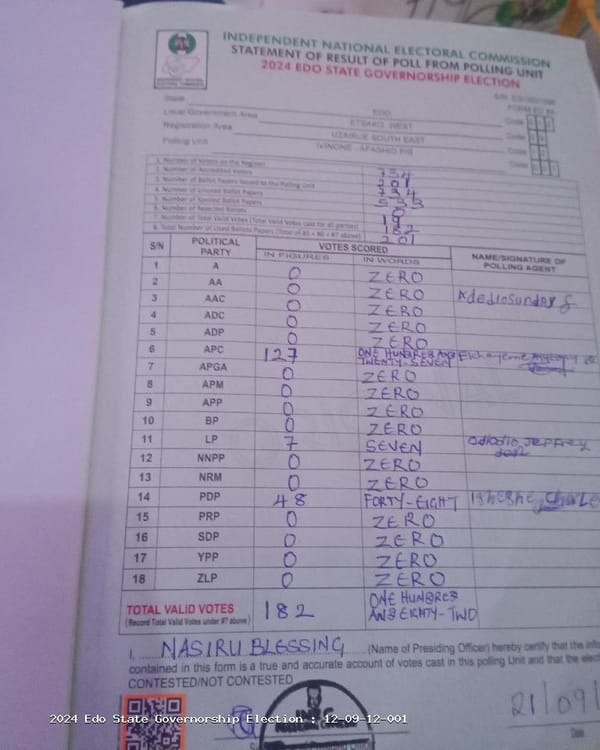 INDEPENDENT NATIONAL ELECTORAL COMMISSION
STATEMENT OF RESULT OF POLL FROM POLLING UNIT
2024 EDO STATE GOVERNORSHIP ELECTION
State EDO
Local Government Area ETSAKO WEST Code
Registration Area UZAIRUE SOUTH EAST Code
Polling Unit Code
1. Number of Voters on the Register 734
2. Number of Accredited Voters 201
3. Number of Ballot Papers Issued to the Polling Unit 734
4. Number of Unused Ballot Papers 533
5. Number of Spoiled Ballot Papers 0
6. Number of Rejected Ballots 19
7. Number of Total Valid Votes (Total Valid Votes cast for all parties) 182
8. Total Number of Used Ballot Papers (Total of #5 + #6 + #7 above) 201
S/N POLITICAL PARTY VOTES SCORED NAME/SIGNATURE OF POLLING AGENT
IN FIGURES IN WORDS
1 A 0 ZERO
2 AA 0 ZERO
3 AAC 0 ZERO
4 ADC 0 ZERO
5 ADP 0 ZERO
6 APC 127 ONE HUNDRED AND TWENTY-SEVEN
7 APGA 0 ZERO
8 APM 0 ZERO
9 APP 0 ZERO
10 BP 0 ZERO
11 LP 7 SEVEN
12 NNPP 0 ZERO
13 NRM 0 ZERO
14 PDP 48 FORTY-EIGHT
15 PRP 0 ZERO
16 SDP 0 ZERO
17 YPP 0 ZERO
18 ZLP 0 ZERO
TOTAL VALID VOTES 182 ONE HUNDRED AND EIGHTY-TWO
(Record Total Valid Votes under #7 above)
I, NASIRU BLESSING (Name of Presiding Officer) hereby certify that the
contained in this form is a true and accurate account of votes cast in this polling Unit and that the
CONTESTED/NOT CONTESTED
21/09/
Date
2024 Edo State Governorship Election : 12-09-12-001